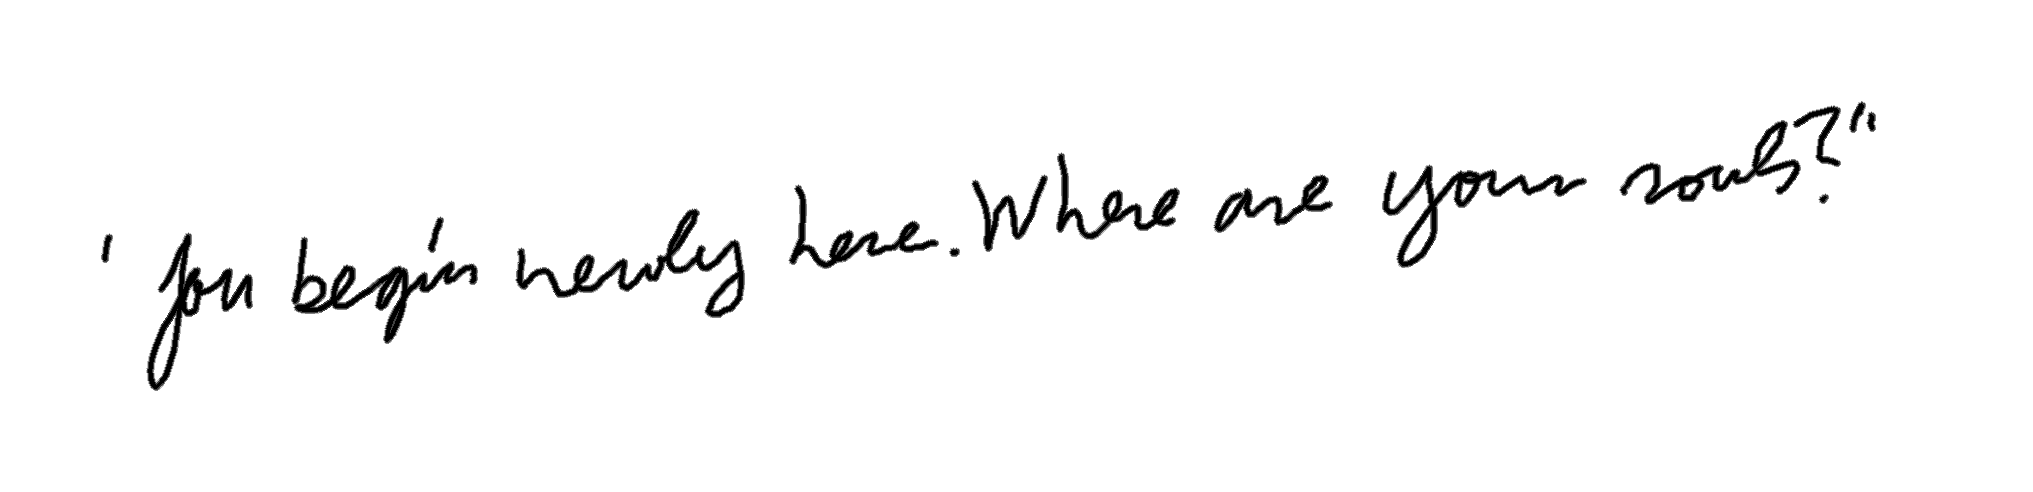 'You begin newly here. Where are your souls?"